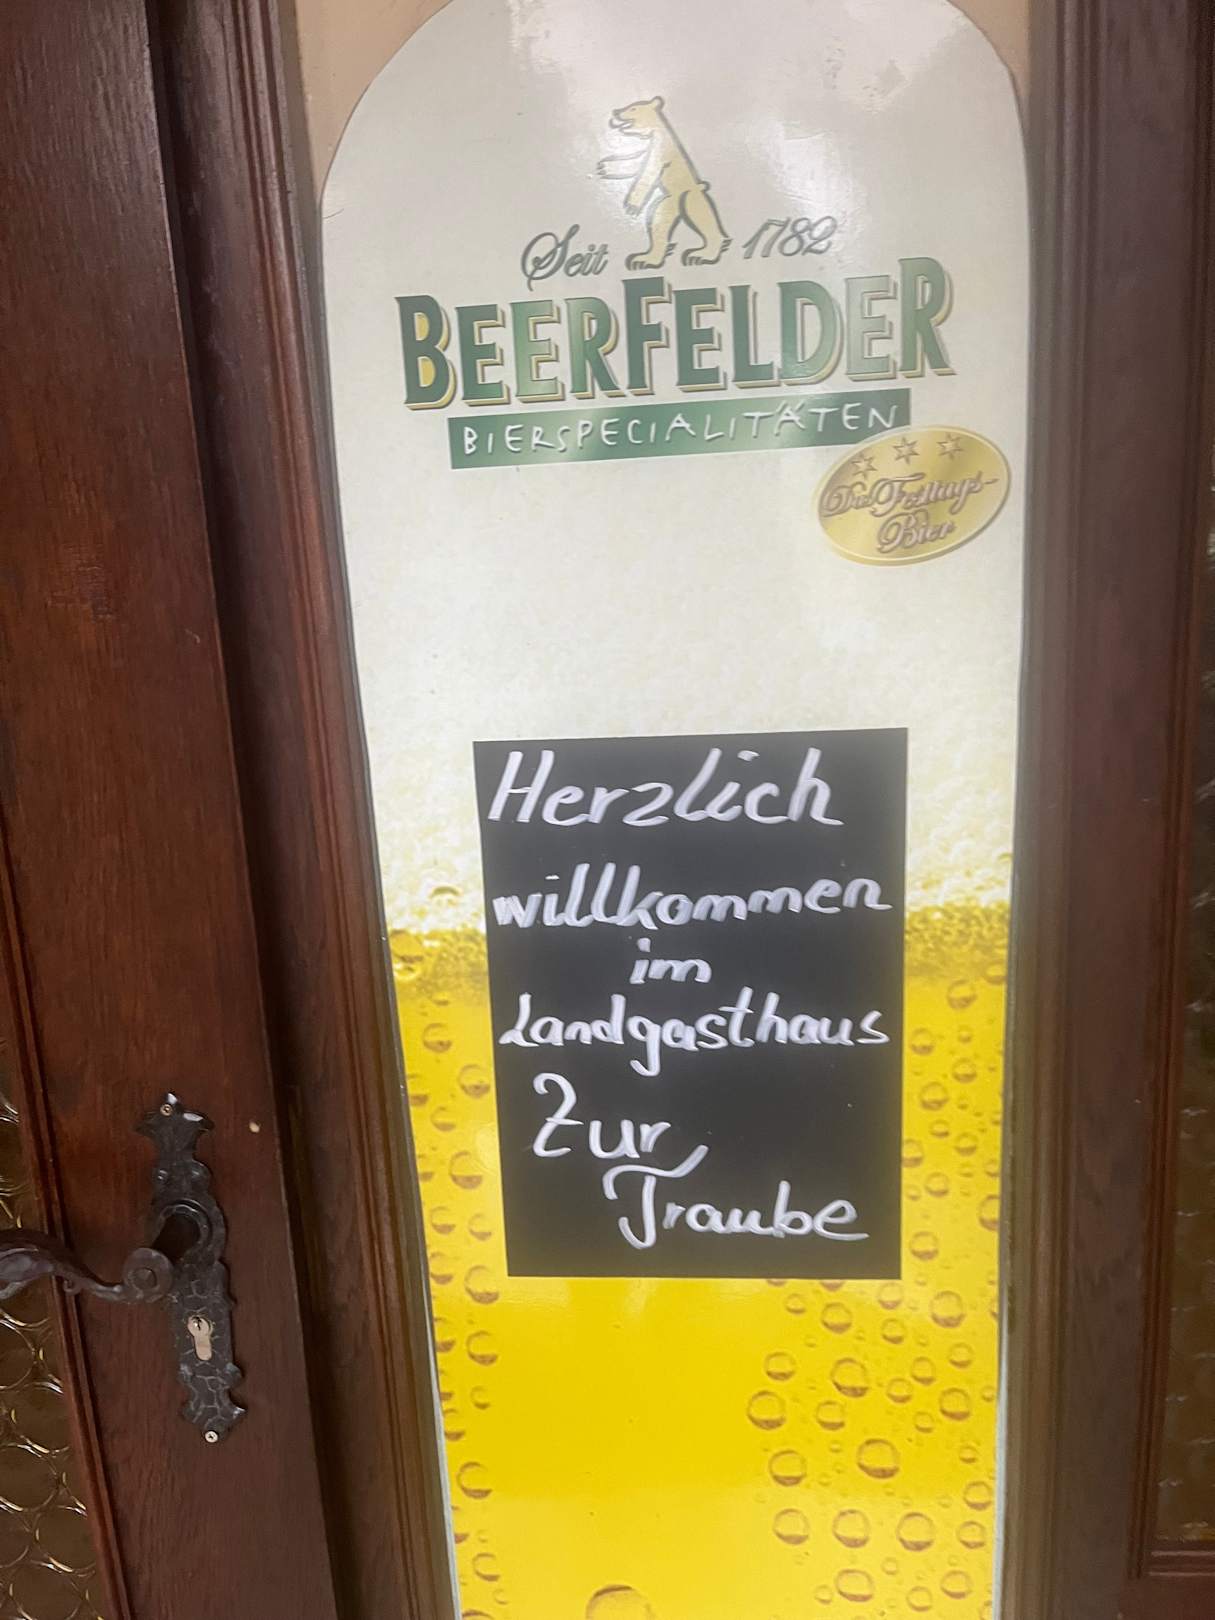 Seit 1782
BEERFELDER
BIERSPECIALITÄTEN
Das Festtags-
Bier
Herzlich
willkommen
im
Landgasthaus
Zur
Traube